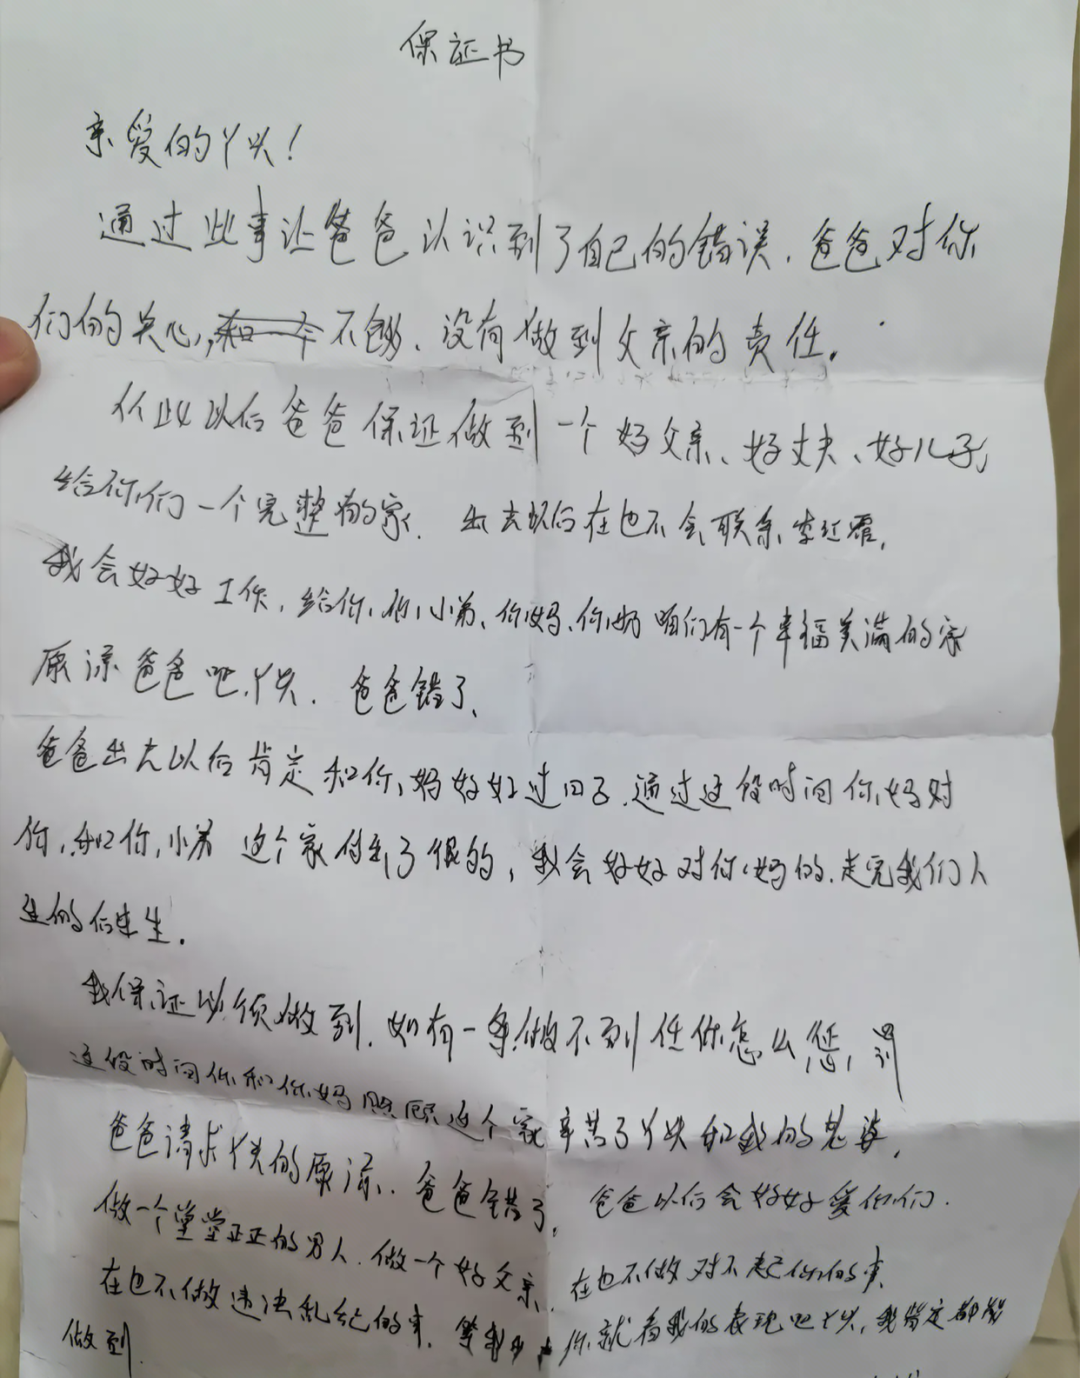 保证书
亲爱的丫头！
通过此事让爸爸认识到了自己的错误．爸爸对你
们的关心，不够、没有做到父亲的责任。
从此以后爸爸保证做到一个好父亲、好丈夫、好儿子，
给你们一个完整的家．出去以后在也不会联系李红霞，
我会好好工作，给你，你小弟、你妈、你奶咱们有一个幸福美满的家
原谅爸爸吧，丫头．爸爸错了、
爸爸出去以后肯定和你妈好好过日子．通过这段时间你妈对
你，和你小弟这个家付出了很的，我会好好对你妈的．走完我们人
生的后半生．
我保证必须做到．如有一条做不到任你怎么惩，罚
这段时间你和你妈照顾这个家辛苦了丫头和我的老婆，
爸爸请求丫头的原谅．爸爸错了，爸爸以后会好好爱你们．
做一个堂堂正正的男人．做一个好父亲、在也不做对不起你们的事．
在也不做违法乱纪的事．等我出你就看我的表现吧丫头，我肯定都能
做到．